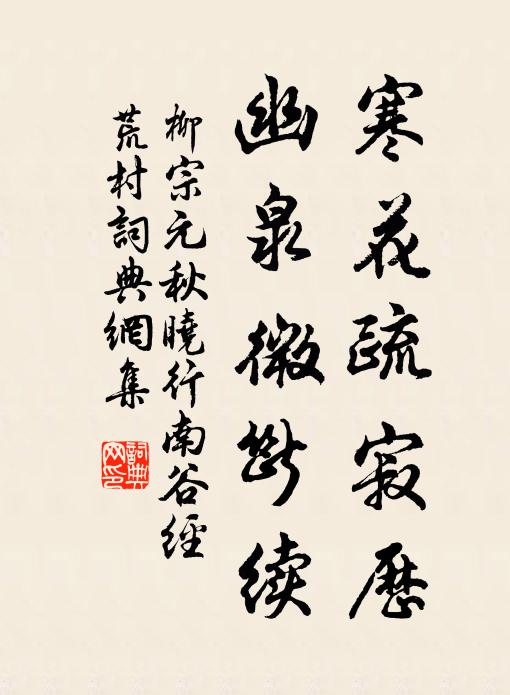 寒花疏寂歷
幽泉微斷續
柳宗元秋曉行南谷經
荒村詞典網集
詞典網印